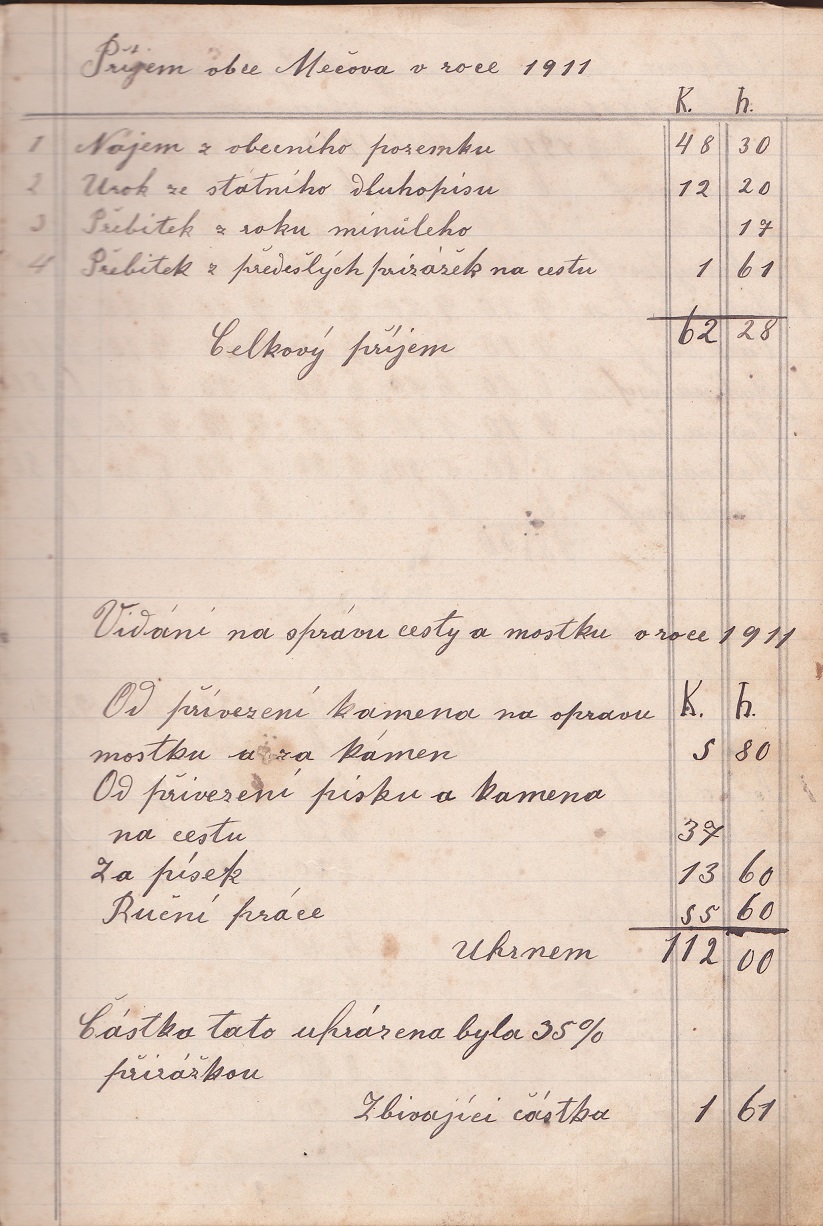 Příjem obce Mečova v roce 1911
K. h.
1 Nájem z obecního pozemku 48 30
2 Urok ze státního dluhopisu 12 20
3 Přebitek z roku minůleho 17
4 Přebitek z předešlých prirážek na cestu 1 61
Celkový příjem 62 28
Vidání na správu cesty a mostku v roce 1911
Od přivezení kamena na opravu K. h.
mostku a za kámen 5 80
Od přivezení pisku a kamena
na cestu 37
Za písek 13 60
Ruční práce 55 60
Uhrnem 112 00
Částka tato uhrázena byla 35%
přirážkou
Zbivající částka 1 61